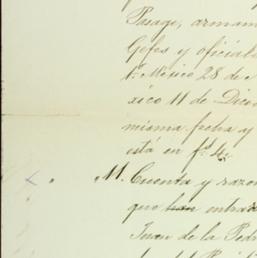 Pasage, armam
Gefes y oficial
1º Mexico 28 de
xico 11 de Dici
misma fecha y
está en f.
M. Cuenta y razon
que han entra
Juan de la Pedr